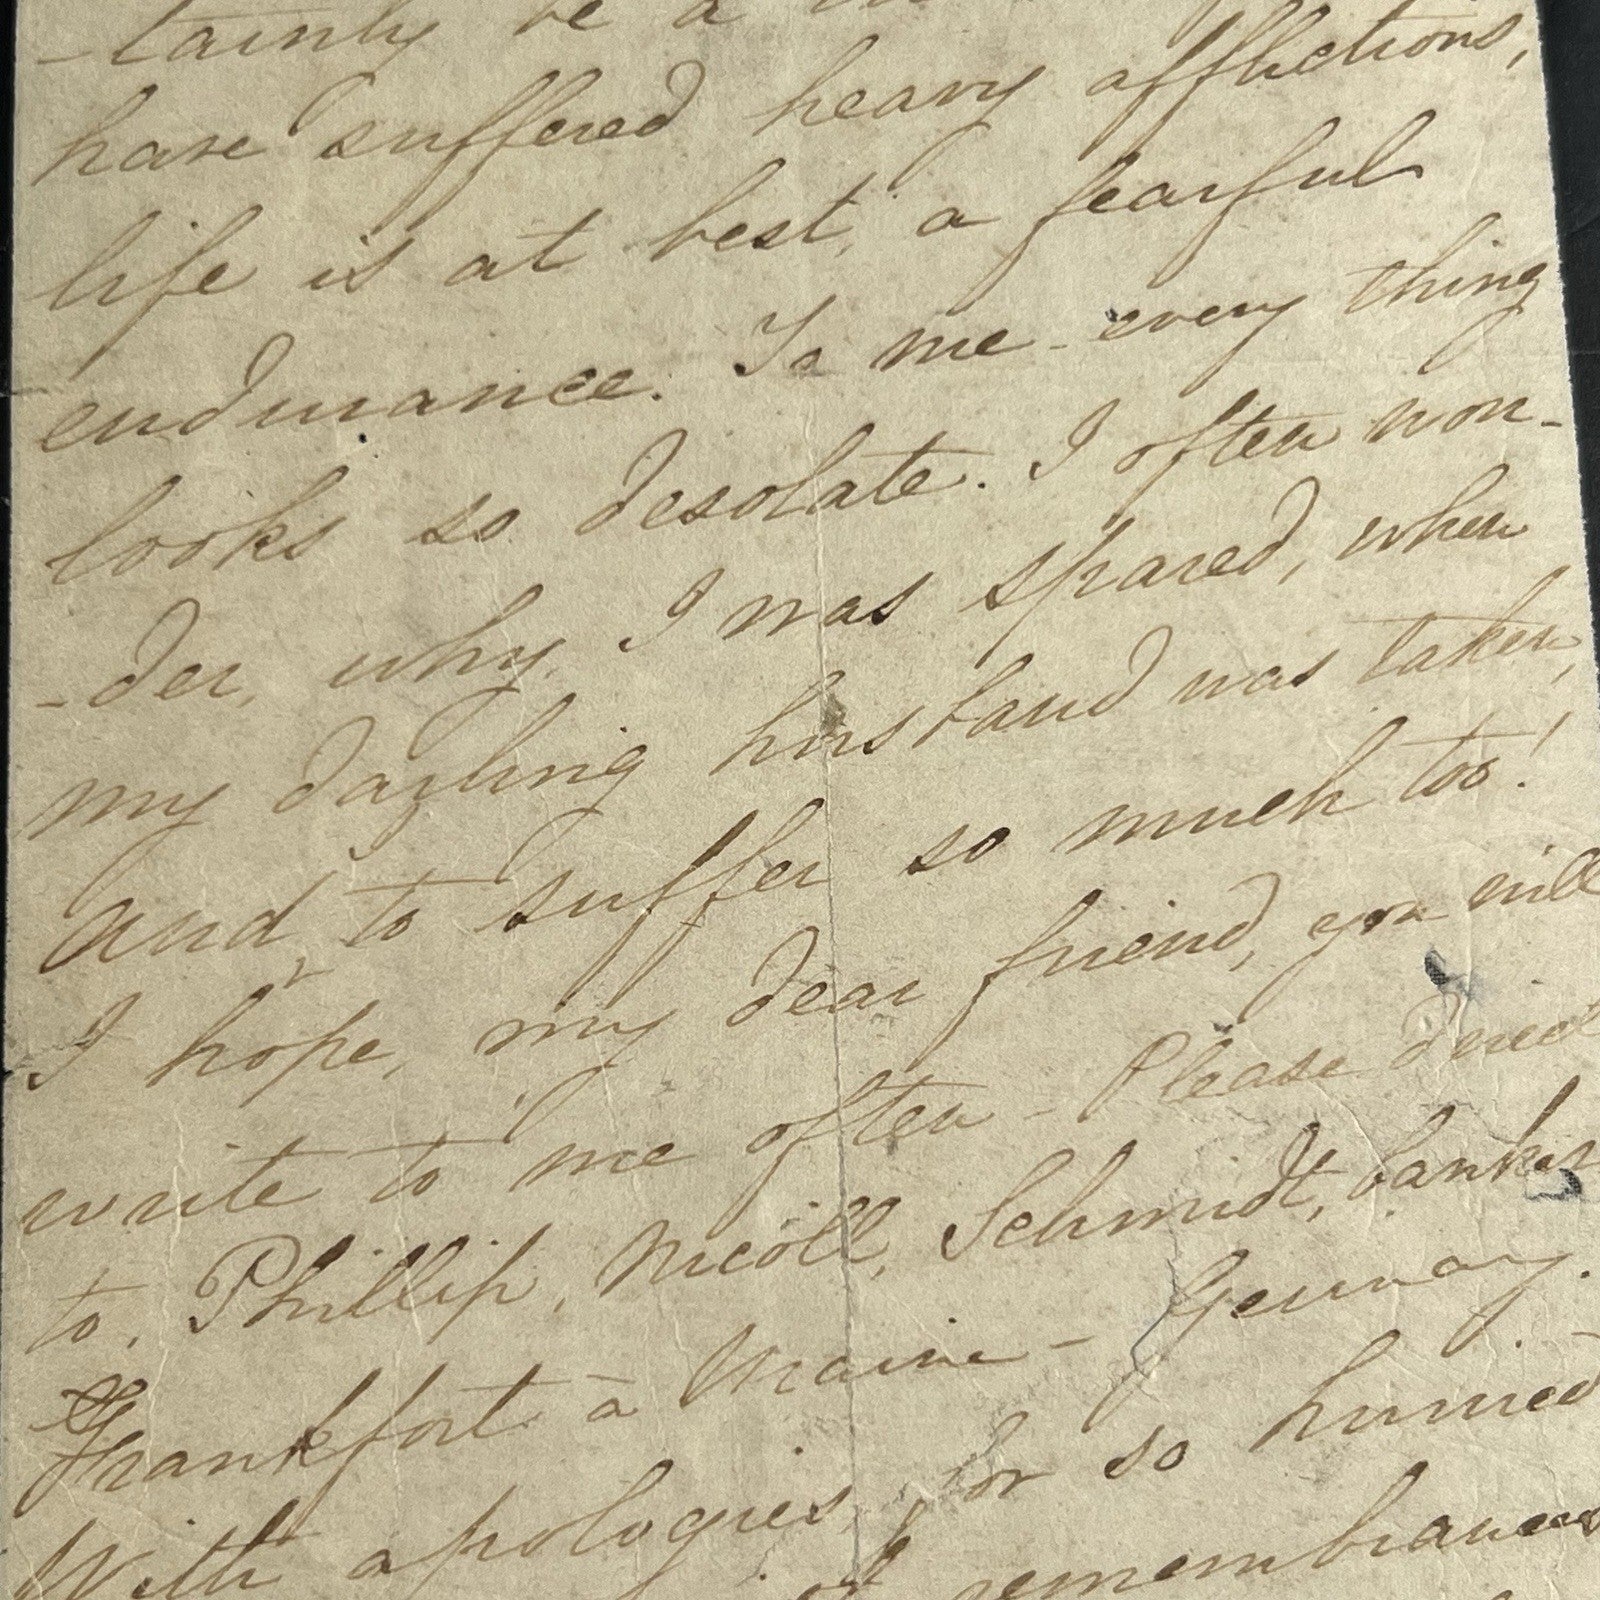 -tainly be a
have suffered heavy afflictions,
life is at best, a fearful
endurance. To me - every thing
looks so desolate. I often won-
-der, why, I was spared, when
my darling husband was taken,
and, to suffer so much too!
I hope, my dear friend, you will
write to me often - Please direct
to, Phillip, Nicöll, Schmidt, banker
Frankfort a Maine - Germany.
With apologies, for so hurried
remembrances